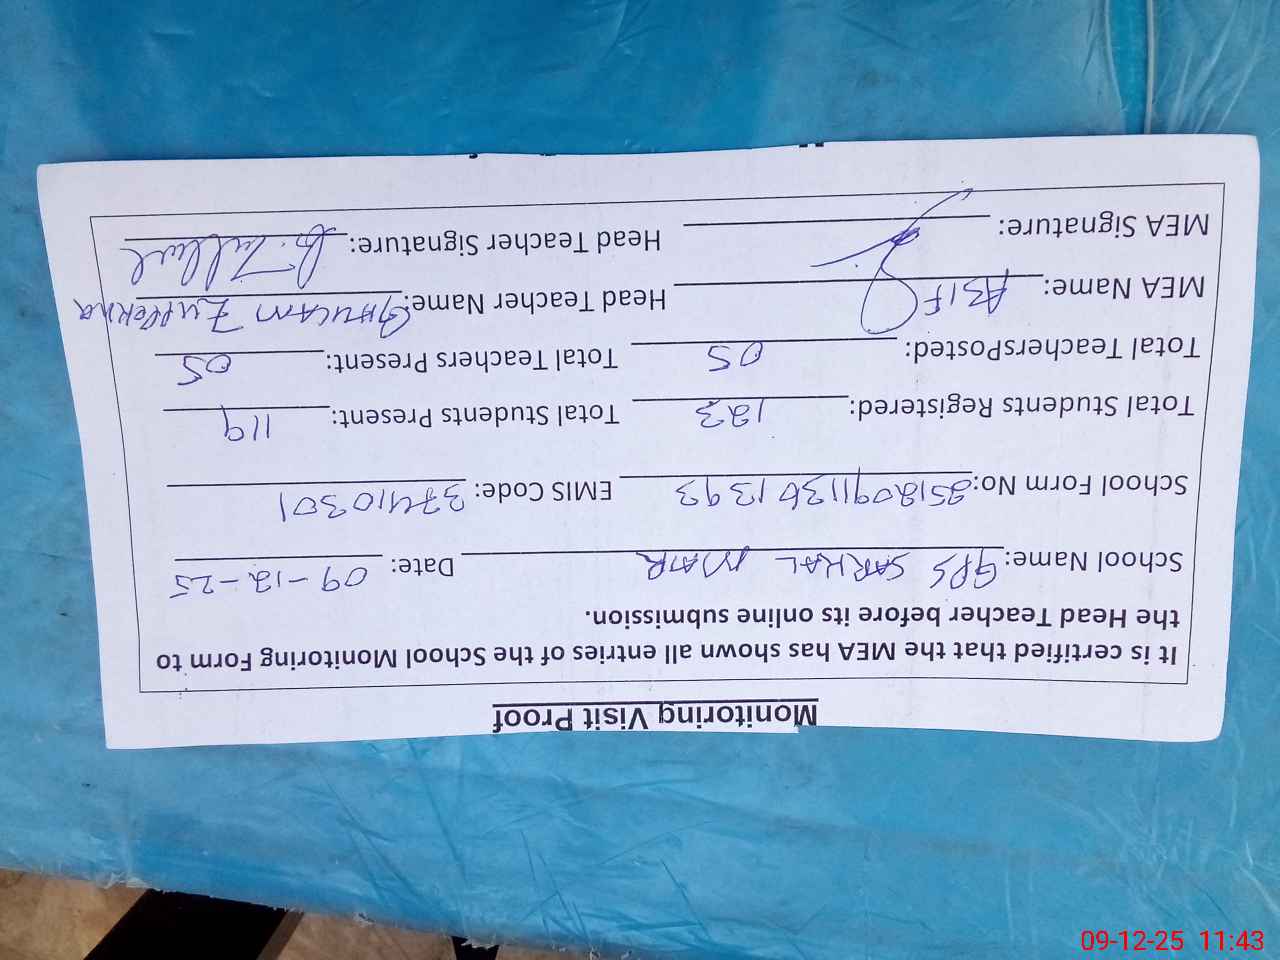 Monitoring Visit Proof
It is certified that the MEA has shown all entries of the School Monitoring Form to
the Head Teacher before its online submission.
School Name: GPS SARHAL MAIR Date: 09-12-25
School Form No: EMIS Code: 37410301
Total Students Registered: 123 Total Students Present: 119
Total TeachersPosted: 05 Total Teachers Present: 05
MEA Name: ASIF Head Teacher Name: GHULAM
MEA Signature: Head Teacher Signature:
09-12-25 11:43